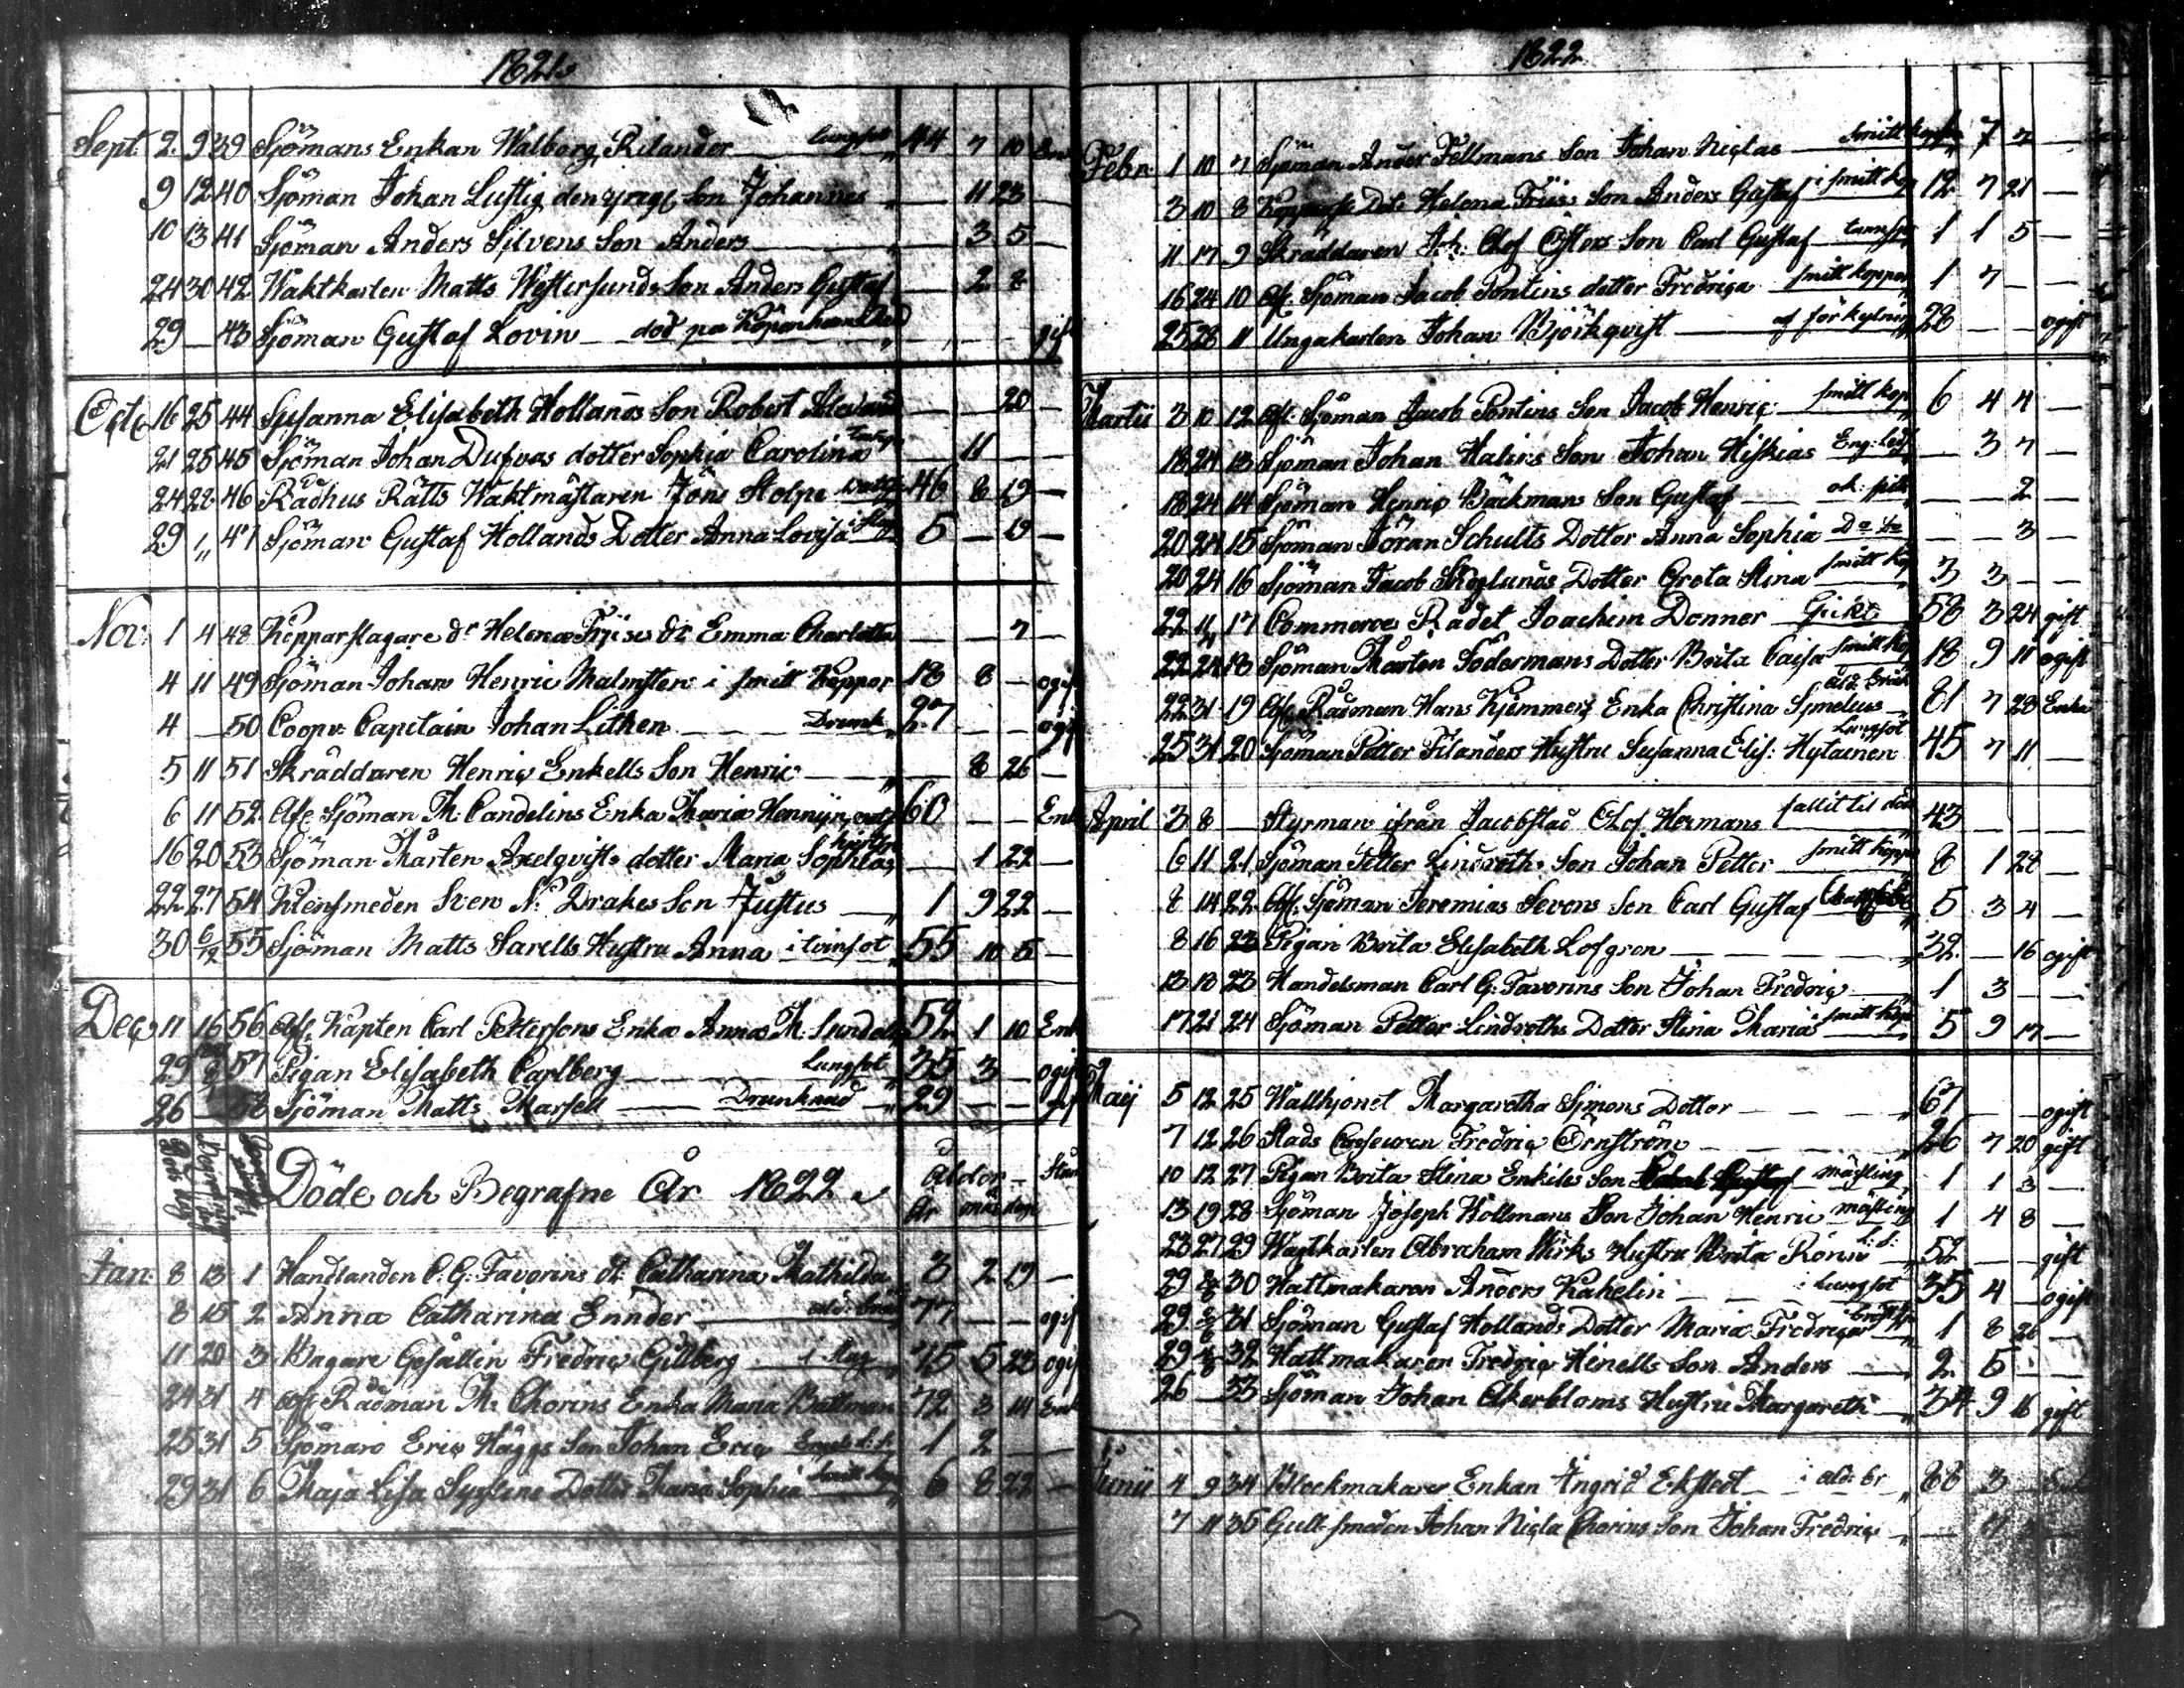 1821.
Sept. 2. 9 39 Sjömans Enkan Walborg Rilander lungsot 44 7 10 Enk
9 12 40 Sjöman Johan Lustig den yngr Son Johannes — 11 23 —
10 13 41 Sjöman Anders Silvens Son Anders — 3 5 —
24 30 42 Waktkarlen Matts Westersunds Son Anders Gustaf — 2 8
29 — 43 Sjöman Gustaf Lovin — död på Köpenhamns Red — — — gift
Oct. 16 25 44 Susanna Elisabeth Hollands Son Robert — — 20 —
21 25 45 Sjöman Johan Dufvas dotter Sophia Carolina — 11 — —
24 28 46 Rådhus Rätts Waktmästaren Jöns Stolpe 46 8 19 —
29 „ 47 Sjöman Gustaf Hollands Dotter Anna Lovisa i slag 5 — 19 —
Nov. 1 4 48 Kopparslagare dr Helena Friises dr Emma Charlotta — — 7 —
4 11 49 Sjöman Johan Henric Malmsten i smitt Koppor 18 8 — ogift
4 — 50 Coopv. Capitain Johan Lithen — Drunk 27 — — ogift
5 11 51 Skräddaren Henric Enkells Son Henric — 8 26 —
6 11 52 Afl. Sjöman M. Candelins Enka Maria 60 — — Enk
16 20 53 Sjöman Mårten Axelqvists dotter Maria Sophia — 1 22 —
22 27 54 Klensmeden Sven N. Drakes Son Justus — 1 9 22 —
30 6/12 55 Sjöman Matts Sarells Hustru Anna i tvinsot 55 10 5 —
Dec. 11 16 56 Afl. Kapten Carl Pettersons Enka Anna M. 52 1 10 Enk
29 57 Pigan Elisabeth Carlberg — Lungsot 35 3 — ogift
26 — 58 Sjöman Matts Marsell — Drunknad 29 — — gift
Döde och Begrafne År 1822
Ålder Stånd
År mån dag
Jan. 8 13 1 Handlanden C. G. Favorins dr Catharina Mathilda 3 2 19 —
8 15 2 Anna Catharina Ennder — ald. bräck 77 — — ogift
11 20 3 Bagare Gesällen Fredric Gillberg — i slag 45 5 23 ogift
24 31 4 Afl. Rådman M. Chorins Enka Maria Battman 72 3 14 Enk
25 31 5 Sjöman Eric Häggs Son Johan Eric 1 2 — —
29 31 6 Maja Lisa Dotter Maria Sophia smitt kop 6 8 22 —
1822
Febr. 1 10 7 Sjöman Ander Fellmans Son Johan Niclas smitt koppor 7 7 —
3 10 8 Koppar Dotr Helena Friises Son Anders Gustaf i smitt kop 12 7 21 —
11 17 9 Skräddaren Joh: Olof Östers Son Carl Gustaf 1 1 5 —
16 24 10 Afl. Sjöman Jacob Pontins dotter Fredrica smitt koppor 1 7 — —
25 28 11 Ungakarlen Johan Björkqvist — af förkylning 28 — — ogift
Martii 3 10 12 Afl. Sjöman Jacob Pontins Son Jacob Henric smitt kop 6 4 4 —
18 24 13 Sjöman Johan Halins Son Johan Hiskias Eng: — 3 7 —
18 24 14 Sjöman Henric Bäckmans Son Gustaf — ok: — — 2 —
20 24 15 Sjöman Jöran Schults Dotter Anna Sophia Do — — 3 —
20 24 16 Sjöman Jacob Skoglunds Dotter Greta Stina smitt kop 3 3 — —
22 17 Commerce Rådet Joachim Donner Gickt 58 3 24 gift
22 24 18 Sjöman Mårten Södermans Dotter Brita Caisa smitt kop 18 9 11 ogift
22 31 19 Afl. Rådman Hans Kjemmers Enka Christina ald: bräck 81 7 23 Enka
25 31 20 Sjöman Petter Filanders Hustru Susanna Elis: Hytainen Lungsot 45 7 11 —
April 3 8 — Styrman ifrån Jacobstad Olof Hermans fallit til död 43 — — —
6 11 21 Sjöman Petter Lindroths Son Johan Petter smitt koppor 8 1 28 —
8 14 22 Afl. Sjöman Jeremias Sevons Son Carl Gustaf 5 3 4 —
8 16 23 Pigan Brita Elisabeth Lofgren — 32 — 16 ogift
13 18 23 Handelsman Carl G: Favorins Son Johan Fredric — 1 3 — —
17 21 24 Sjöman Petter Lindroths Dotter Stina Maria smitt kop 5 9 17 —
Maij 5 12 25 Wallhjonet Margaretha Simons Dotter — 67 — — ogift
7 12 26 Stads Casseuren Fredric Örnström — 26 7 20 gift
10 12 27 Pigan Brita Stina Enkiles Son mässling 1 1 3 —
13 19 28 Sjöman Joseph Hollmans Son Johan Henric mässling 1 4 8 —
23 27 29 Wagtkarlen Abraham Wirks Hustru Brita Rönn 52 — — gift
29 30 Hattmakaren Anders Kahelin — i Lungsot 35 4 — ogift
29 31 Sjöman Gustaf Hollands Dotter Maria Fredrica 1 8 26 —
29 32 Hattmakaren Fredric Hinells Son Anders — 2 5 — —
26 — 33 Sjöman Johan Åkerbloms Hustru Margareth 34 9 16 gift
Junii 4 9 34 Blockmakare Enkan Ingrid Ekstedt — i ald: br 88 3 —
7 11 35 Gull smeden Johan Nicla Chorins Son Johan Fredric —